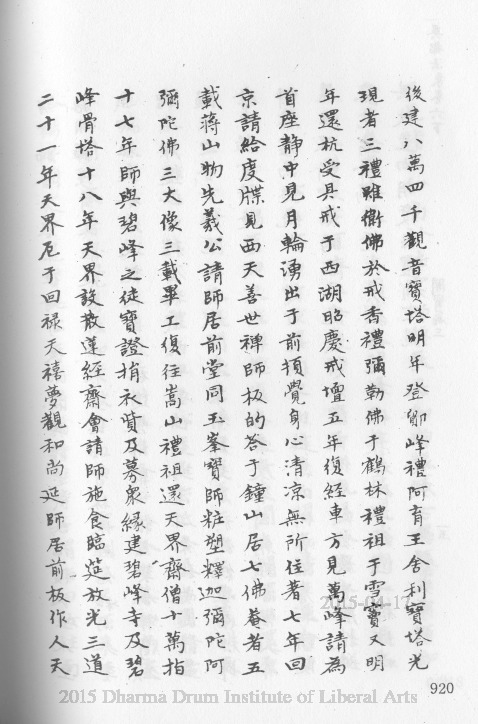 後建八萬四千觀音寶塔明年登鄮峰禮阿育王舍利寶塔光
現者三禮雖衛佛於戒香禮彌勒佛于鶴林禮祖于雪竇又明
年還杭受具戒于西湖昭慶戒壇五年復經車方見萬峰請為
首座靜中見月輪湧出于前頓覺身心清凉無所住著七年回
京請給度牒見西天善世禪師板的答于鐘山居七佛菴者五
載蔣山物先義公請師居前堂同玉峯寶師粧塑釋迦彌陀阿
彌陀佛三大像三載畢工復往嵩山禮祖還天界齋僧十萬指
十七年師與碧峰之徒寶證捐衣貲及募眾緣建碧峰寺及碧
峰骨塔十八年天界設散蓮經齋會請師施食臨筵放光三道
二十一年天界厄于回禄天禧夢觀和尚延師居前板作人天
2015-04-17
920
2015 Dharma Drum Institute of Liberal Arts